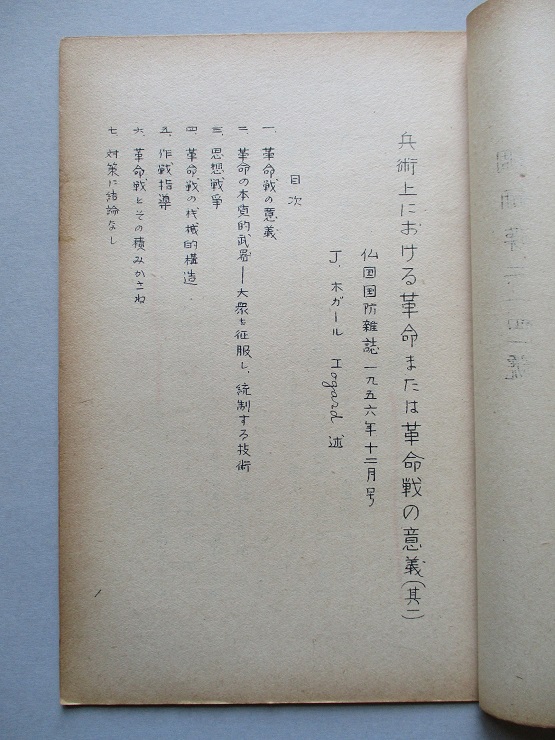 兵術上における革命または革命戦の意義（其二）
仏国国防雑誌 一九五六年十二月号
J. ホガール Hogard 述
目次
一、革命戦の意義
二、革命の本質的武器―大衆を征服し、統制する技術
三、思想戦争
四、革命戦の機械的構造
五、作戦指導
六、革命戦とその積みかさね
七、対策に結論なし